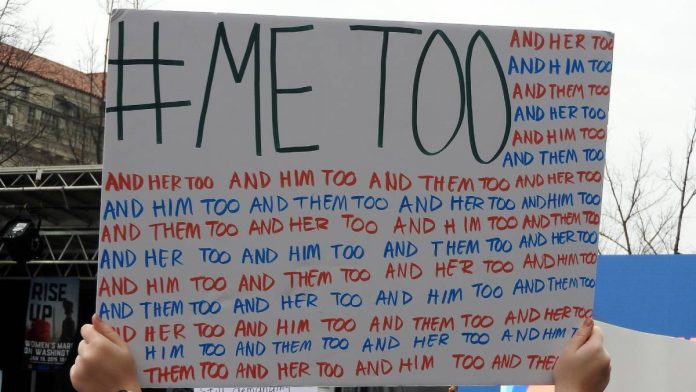 #ME TOO
AND HER TOO
AND HIM TOO
AND THEM TOO
AND HER TOO
AND HIM TOO
AND THEM TOO
AND HER TOO AND HIM TOO AND THEM TOO AND HER TOO
AND HIM TOO AND THEM TOO AND HER TOO AND HIM TOO
AND THEM TOO AND HER TOO AND HIM TOO AND THEM TOO
AND HER TOO AND HIM TOO AND THEM TOO AND HER TOO
AND HIM TOO AND THEM TOO AND HER TOO AND HIM TOO
AND THEM TOO AND HER TOO AND HIM TOO AND THEM TOO
AND HER TOO AND HIM TOO AND THEM TOO AND HER TOO
HIM TOO AND THEM TOO AND HER TOO AND HIM
THEM TOO AND HER TOO AND HIM TOO AND THEM
RISE
UP
WOMEN'S
ON WASHINGTON
JAN 19, 2019